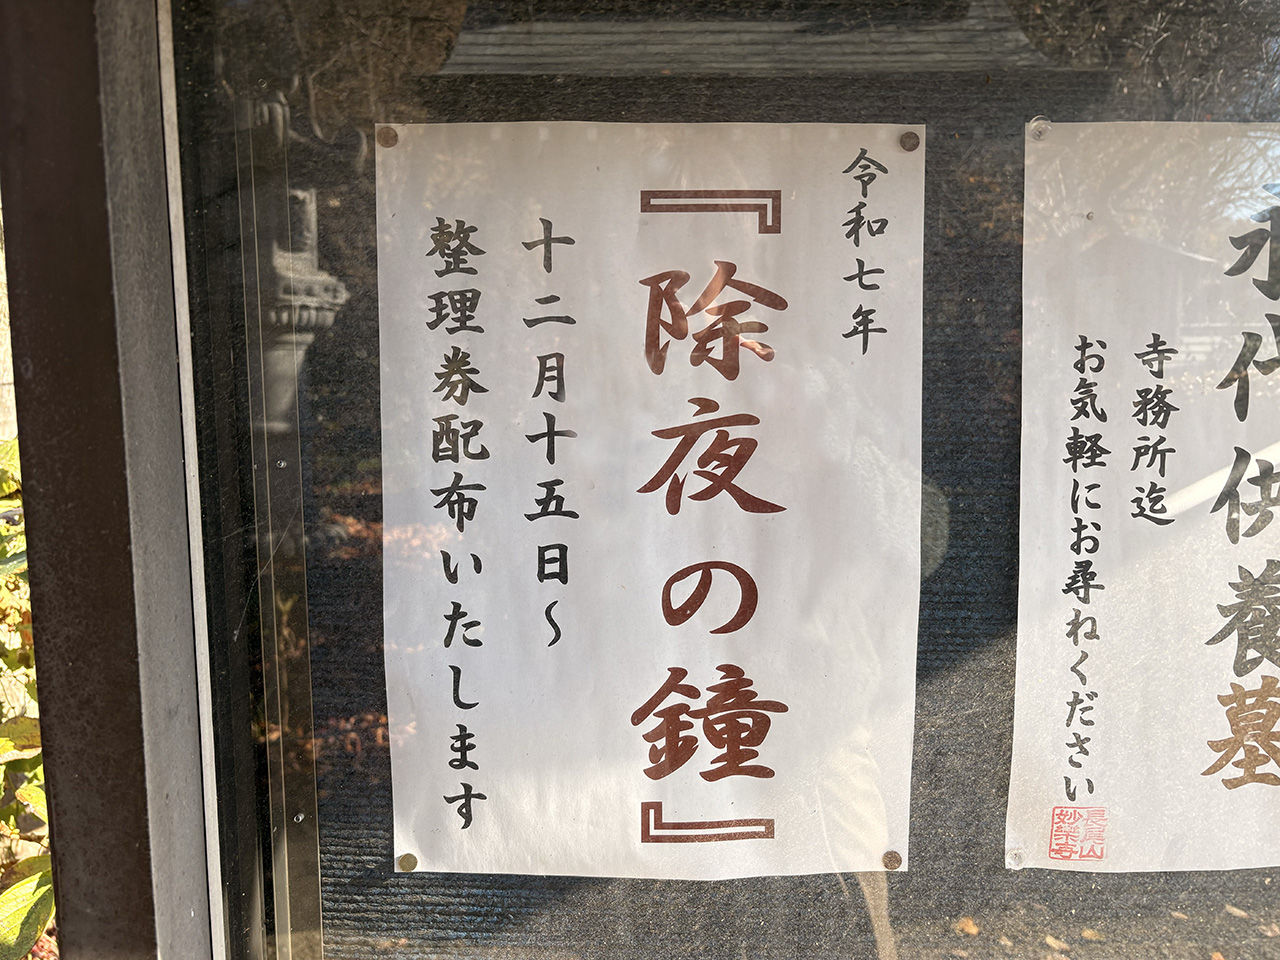 永代供養墓
寺務所迄
お気軽にお尋ねください
長尾山
妙樂寺
令和七年
『除夜の鐘』
十二月十五日〜
整理券配布いたします